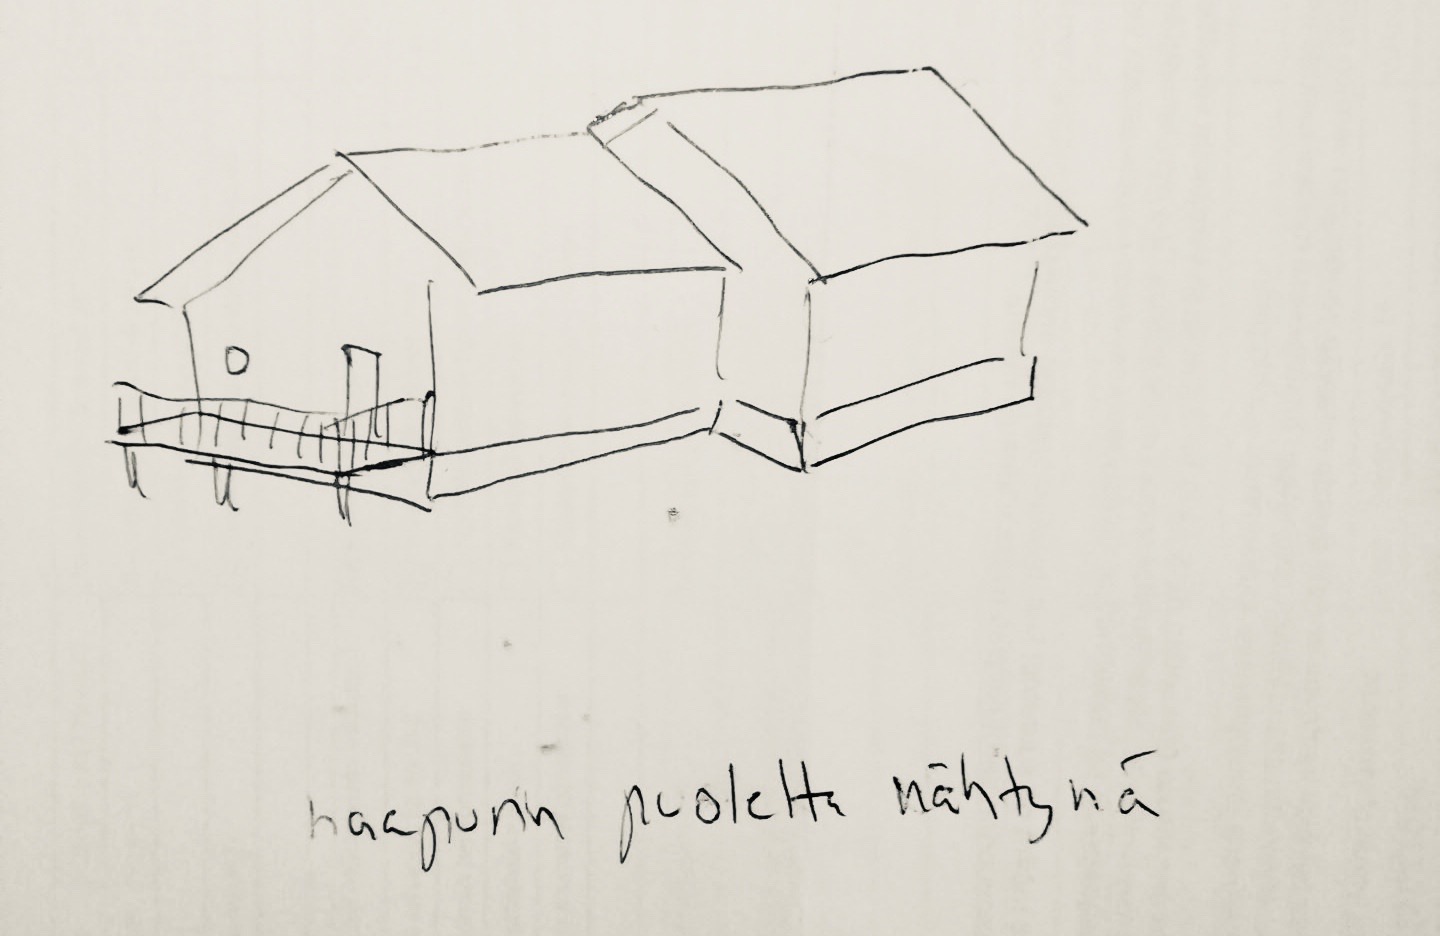 naapurin puoletta nähtynä